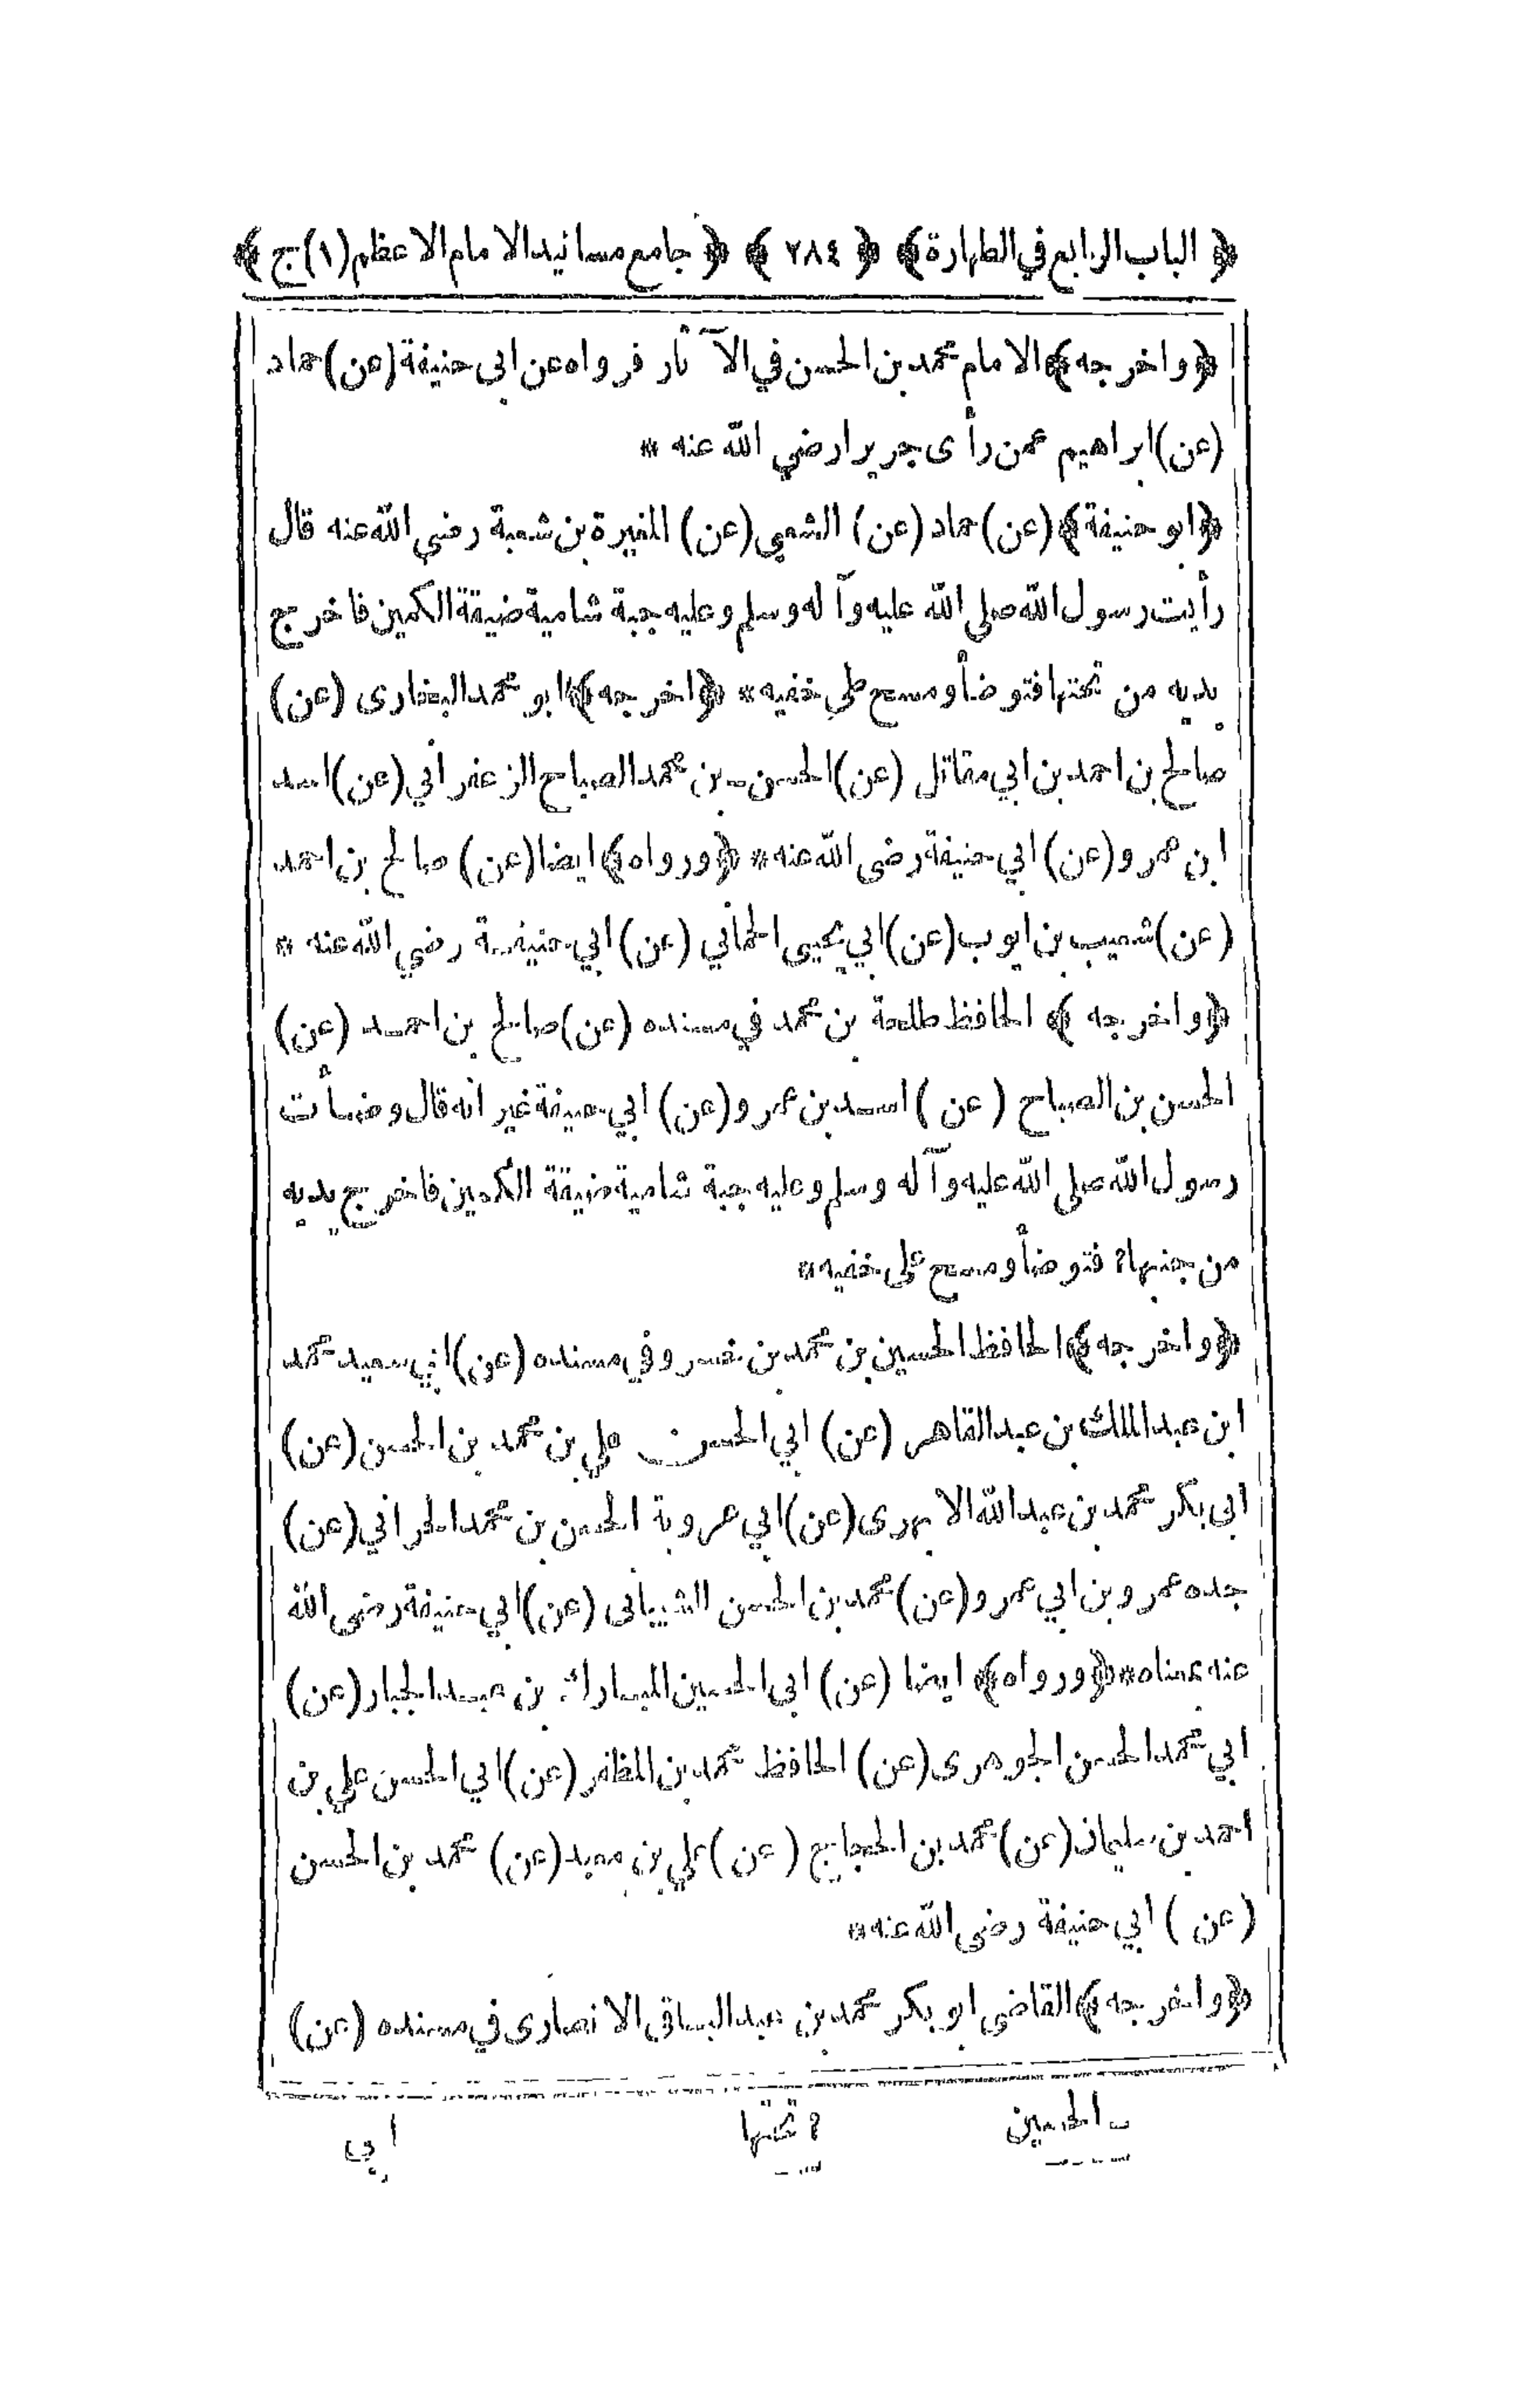 ﴿ الباب الرابع في الطهارة ﴾ ﴿ ٢٨٤ ﴾ ﴿ جامع مسانيد الامام الاعظم (١) ج ﴾
﴿ واخرجه ﴾ الامام محمد بن الحسن في الآثار فرواه عن ابى حنيفة (عن) حماد
(عن) ابراهيم عمن رأى جريرا رضي الله عنه *
﴿ ابو حنيفة ﴾ (عن) حماد (عن) الشعبي (عن) المغيرة بن شعبة رضي الله عنه قال
رأيت رسول الله صلى الله عليه وآله وسلم وعليه جبة شامية ضيقة الكمين فاخرج
يديه من تحتها فتوضأ ومسح على خفيه * ﴿ اخرجه ﴾ ابو محمد البخارى (عن)
صالح بن احمد بن ابي مقاتل (عن) الحسن ـ بن محمد الصباح الزعفراني (عن) اسد
ابن عمرو (عن) ابي حنيفة رضى الله عنه * ﴿ ورواه ﴾ ايضا (عن) صالح بن احمد
(عن) شعيب بن ايوب (عن) ابي يحيى الحماني (عن) ابي حنيفة رضي الله عنه *
﴿ واخرجه ﴾ الحافظ طلحة بن محمد في مسنده (عن) صالح بن احمد (عن)
الحسن بن الصباح (عن) اسد بن عمرو (عن) ابي حنيفة غير انه قال وضأت
رسول الله صلى الله عليه وآله وسلم وعليه جبة شامية ضيقة الكمين فاخرج يديه
من جنبها ؟ فتوضأ ومسح على خفيه *
﴿ واخرجه ﴾ الحافظ الحسين بن محمد بن خسرو في مسنده (عن) ابي سعيد محمد
ابن عبد الملك بن عبد القاهر (عن) ابي الحسن علي بن محمد بن الحسن (عن)
ابى بكر محمد بن عبد الله الابهرى (عن) ابي عروبة الحسن بن محمد الحراني (عن)
جده عمرو بن ابي عمرو (عن) محمد بن الحسن الشيبانى (عن) ابي حنيفة رضى الله
عنه بمعناه * ﴿ ورواه ﴾ ايضا (عن) ابى الحسين المبارك بن عبد الجبار (عن)
ابي محمد الحسن الجوهرى (عن) الحافظ محمد بن المظفر (عن) ابي الحسن علي بن
احمد بن سليمان (عن) محمد بن الحجاج (عن) علي بن معبد (عن) محمد بن الحسن
(عن) ابي حنيفة رضى الله عنه *
﴿ واخرجه ﴾ القاضي ابو بكر محمد بن عبد الباقى الانصارى في مسنده (عن)
ـ الحسين ؟ تحتها ابي